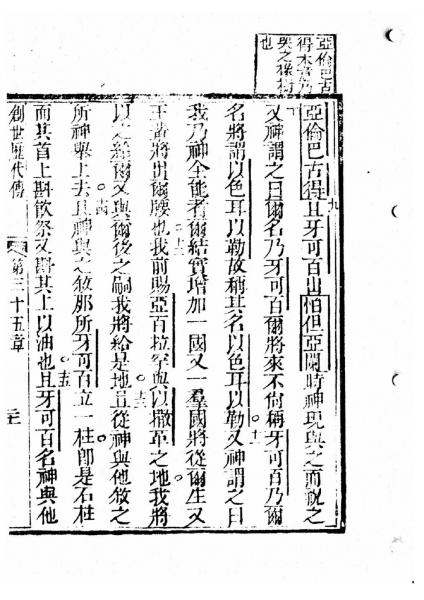 亞倫巴古
得木音乃
哭之橡樹
也
亞倫巴古得且牙可百山怕但亞闌時神現與之而祝之
十
又神謂之曰爾名乃牙可百爾將來不尙稱牙可百乃爾
名將謂以色耳以勒故稱其名以色耳以勒又神謂之曰
十一
我乃神全能者爾結實增加一國又一羣國將從爾生又
王者將出爾腰也我前賜亞百拉罕與以撒革之地我將
十二
以之給爾又與爾後之嗣我將給是地且從神與他敘之
十三
所神舉上去且神與之敘那所牙可百立一柱卽是石柱
十四
而其首上斟飲祭又斟其上以油也且牙可百名神與他
十五
創世歷代傳
第三十五章